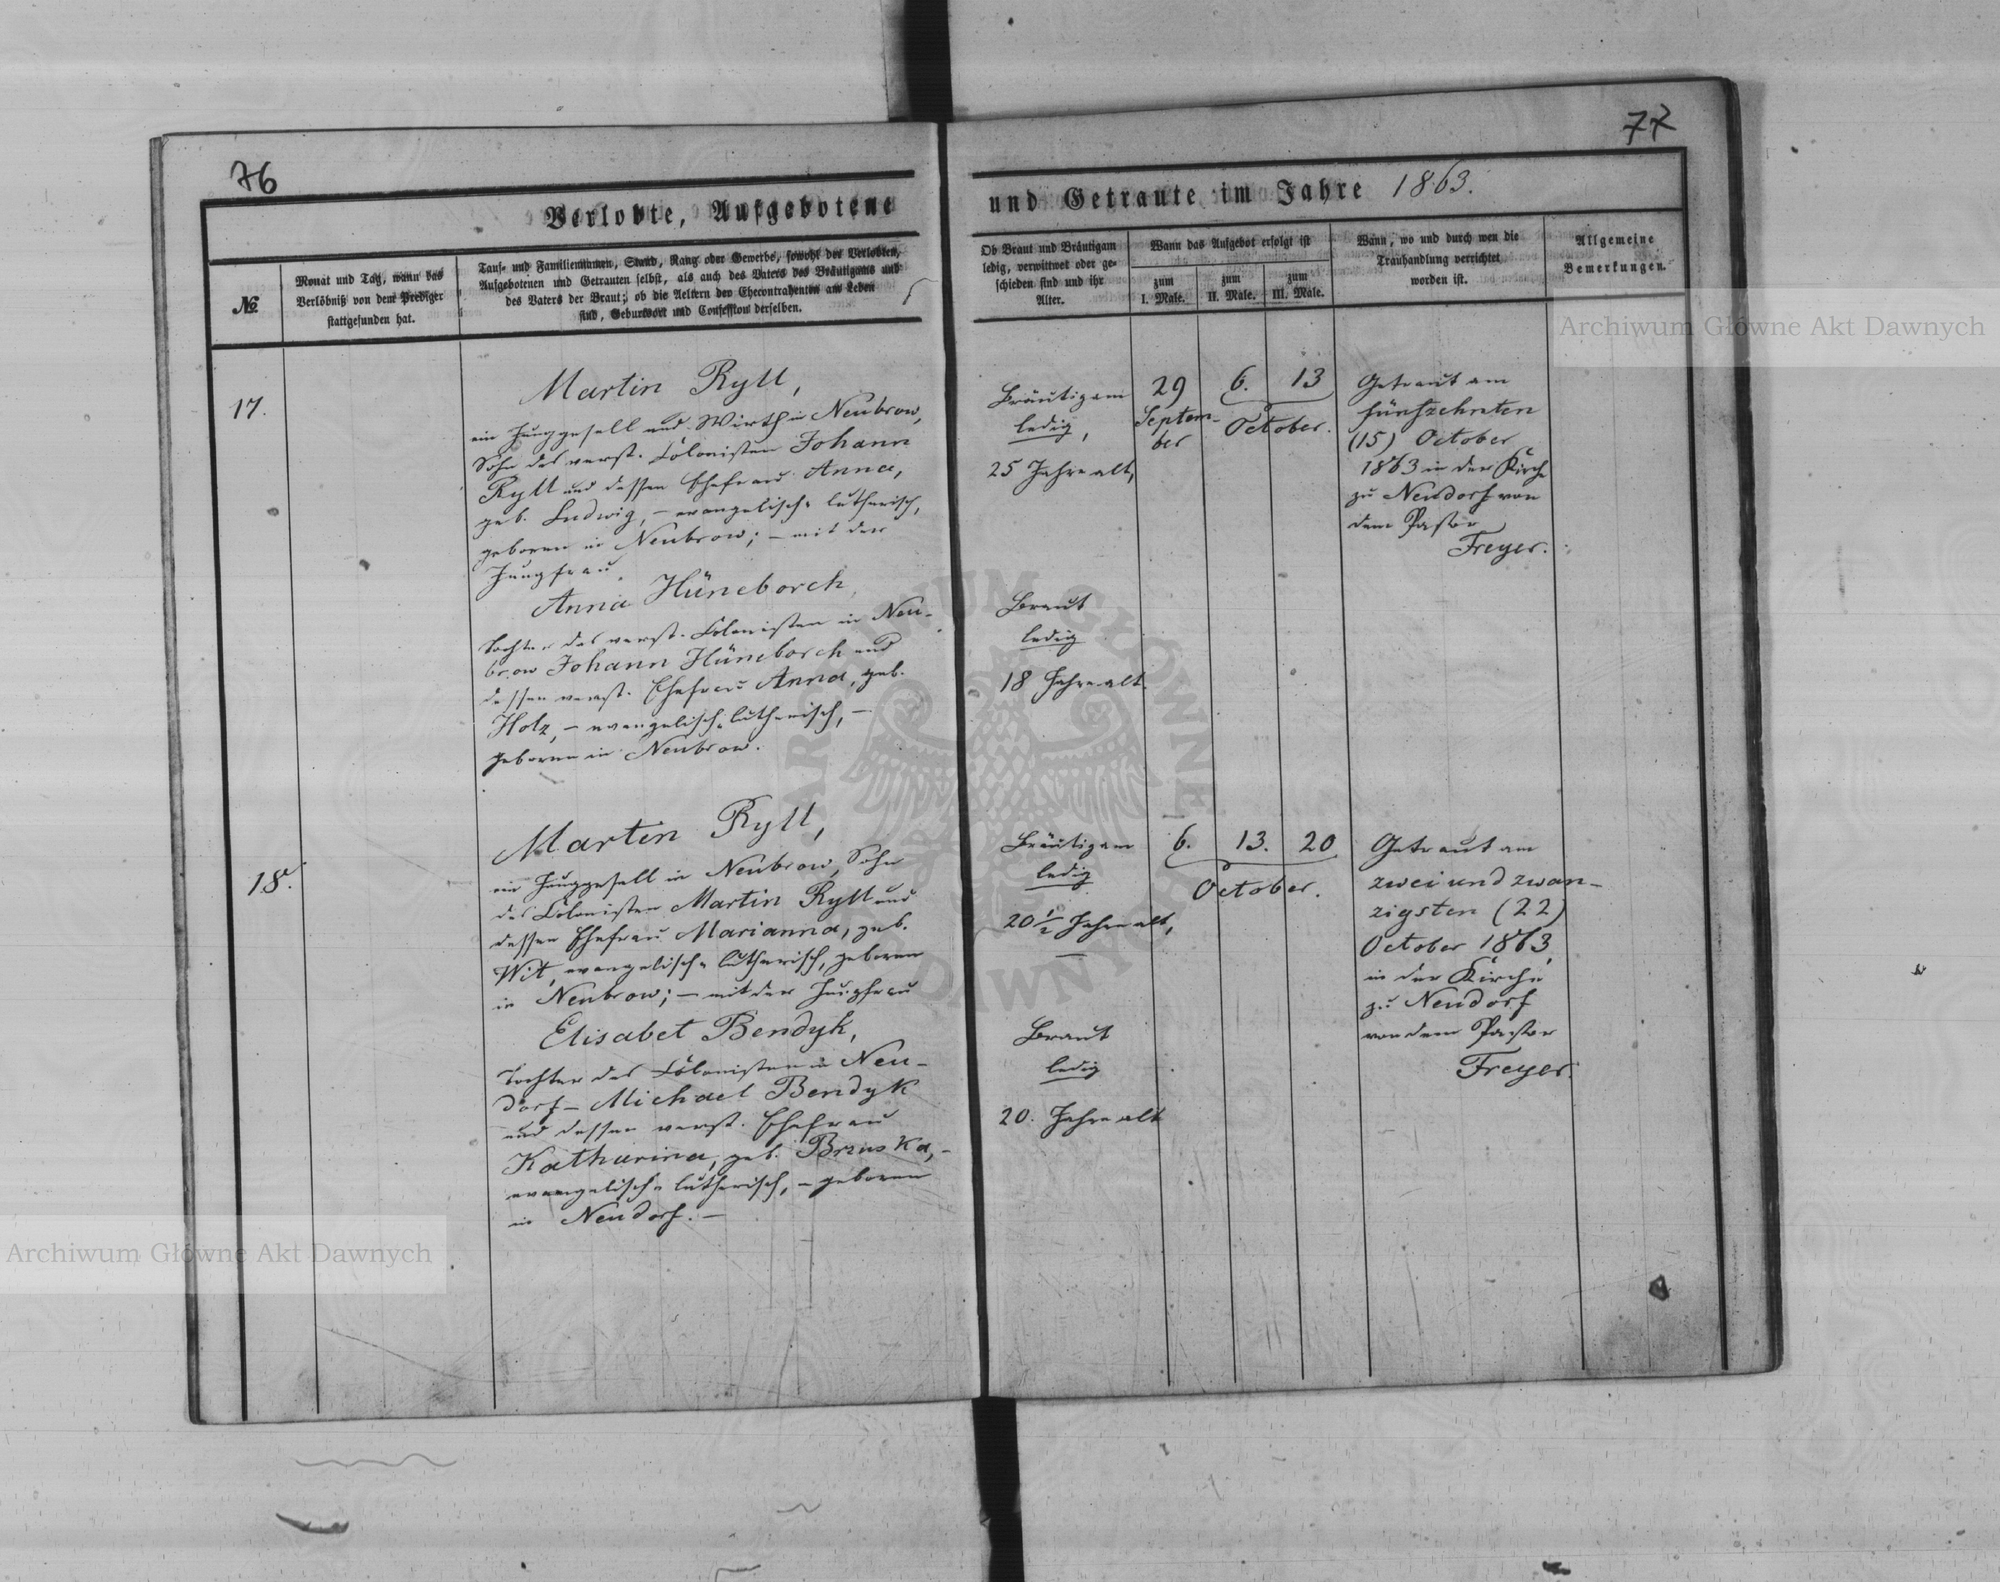 76
77
Verlobte, Aufgebotene
und Getraute im Jahre 1863.
№
Monat und Tag, wann das
Verlöbniß von dem Prediger
stattgefunden hat.
Tauf- und Familiennamen, Stand, Rang oder Gewerbe, sowohl der Verlobten,
Aufgebotenen und Getrauten selbst, als auch des Vaters des Bräutigams und
des Vaters der Braut; ob die Aeltern der Ehecontrahenten am Leben
sind, Geburtsort und Confession derselben.
Ob Braut und Bräutigam
ledig, verwittwet oder ge-
schieden sind und ihr
Alter.
Wann das Aufgebot erfolgt ist
zum
I. Male.
zum
II. Male.
zum
III. Male.
Wann, wo und durch wen die
Trauhandlung verrichtet
worden ist.
Allgemeine
Bemerkungen.
17.
Martin Ryll,
ein Junggesell und Wirth in Neubrow,
Sohn des verst. Colonisten Johann
Ryll und dessen Ehefrau Anna,
geb. Ludwig, – evangelisch-lutherisch,
geboren in Neubrow; – mit der
Jungfrau
Anna Hüneborch,
Tochter des verst. Colonisten in Neu-
brow Johann Hüneborch und
dessen verst. Ehefrau Anna, geb.
Holz, – evangelisch-lutherisch, –
geboren in Neubrow.
Bräutigam
ledig,
25 Jahre alt,
Braut
ledig
18 Jahre alt.
29
Septem-
ber
6. 13
October.
Getraut am
fünfzehnten
(15) October
1863 in der Kirche
zu Neudorf von
dem Pastor
Freyer.
18.
Martin Ryll,
ein Junggesell in Neubrow, Sohn
des Colonisten Martin Ryll und
dessen Ehefrau Marianna, geb.
Wit, evangelisch-lutherisch, geboren
in Neubrow; – mit der Jungfrau
Elisabet Bendyk,
Tochter des Colonisten in Neu-
dorf – Michael Bendyk
und dessen verst. Ehefrau
Katharina, geb. Bruska, –
evangelisch-lutherisch, – geboren
in Neudorf. –
Bräutigam
ledig
20 1/2 Jahre alt,
Braut
ledig
20. Jahre alt
6. 13. 20
October.
Getraut am
zwei und zwan-
zigsten (22)
October 1863,
in der Kirche
zu Neudorf
von dem Pastor
Freyer.
Archiwum Główne Akt Dawnych
ARCHIWUM GŁÓWNE AKT DAWNYCH
Archiwum Główne Akt Dawnych